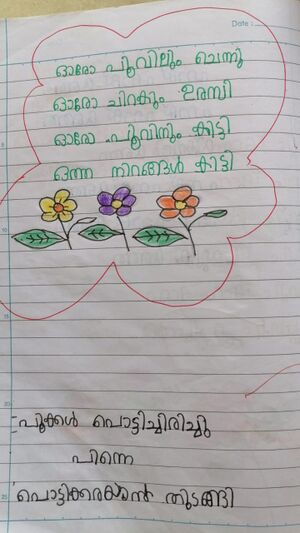 Date :
ഓരോ പൂവിലും ചെന്നു
ഓരോ ചിറകും ഉരസി
ഓരോ പൂവിനും കിട്ടി
ഒത്ത നിറങ്ങൾ കിട്ടി
പൂക്കൾ പൊട്ടിച്ചിരിച്ചു
പിന്നെ
പൊട്ടിക്കരയാൻ തുടങ്ങി